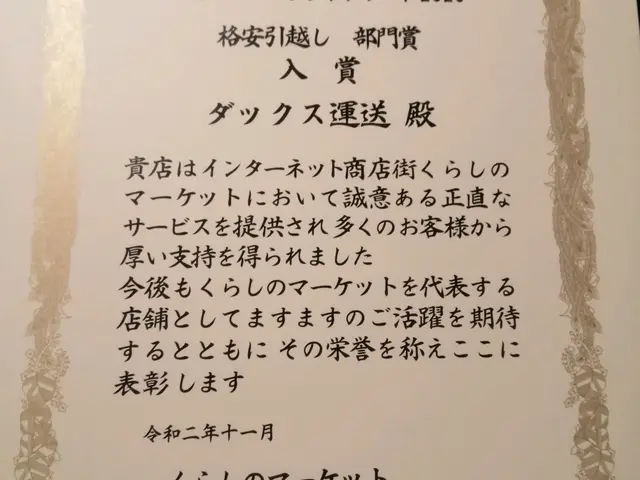 格安引越し 部門賞
入賞
ダックス運送 殿
貴店はインターネット商店街くらしの
マーケットにおいて誠意ある正直な
サービスを提供され多くのお客様から
厚い支持を得られました
今後もくらしのマーケットを代表する
店舗としてますますのご活躍を期待
するとともに その栄誉を称えここに
表彰します
令和二年十一月
くらしのマーケット